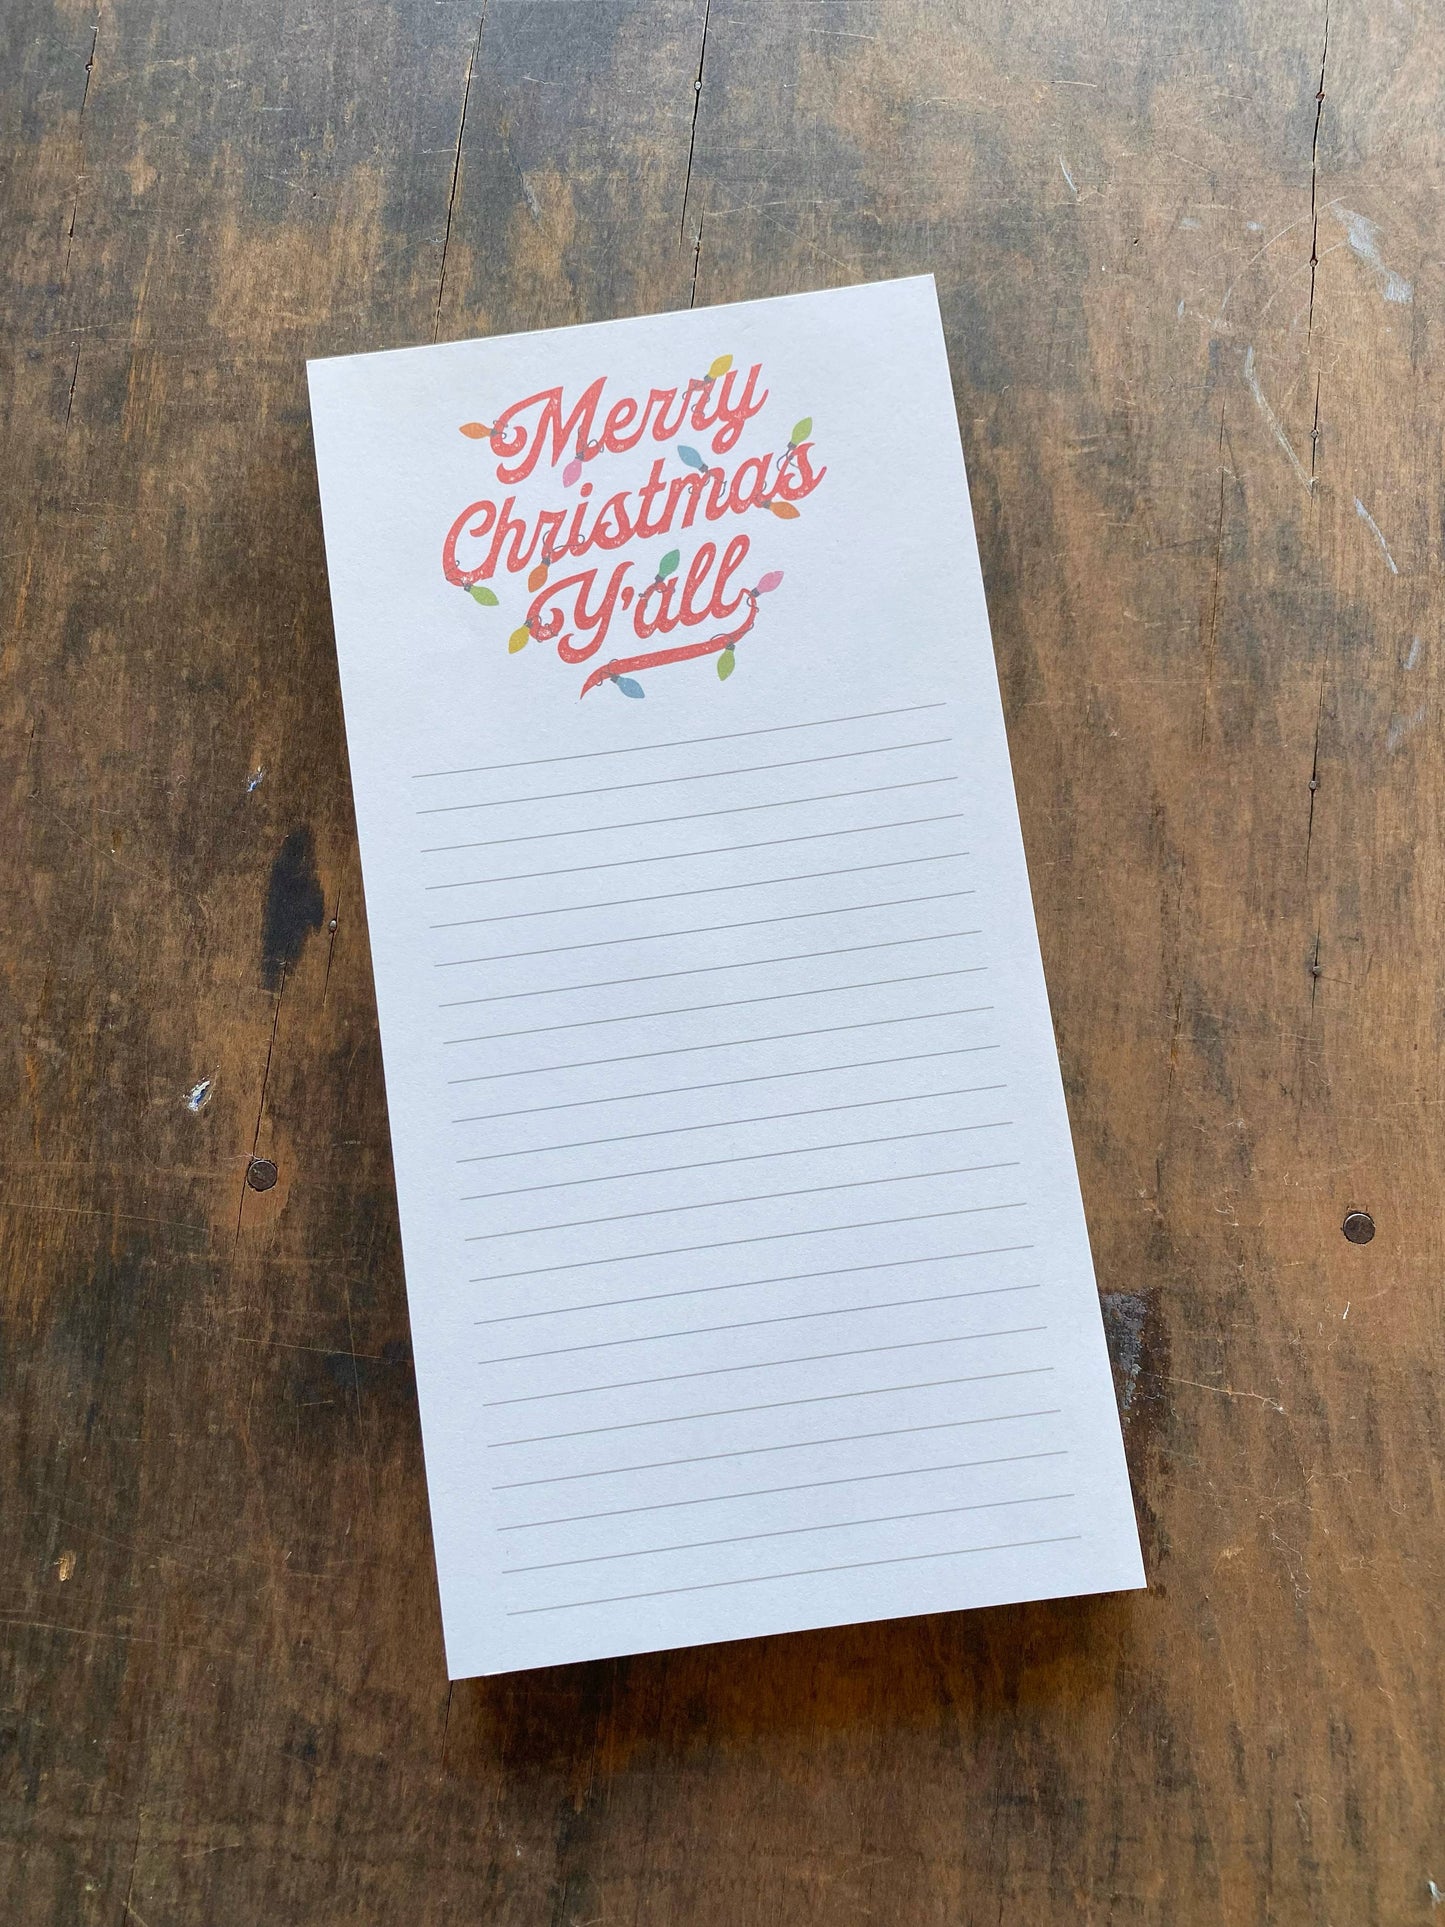 Merry
Christmas
Y'all